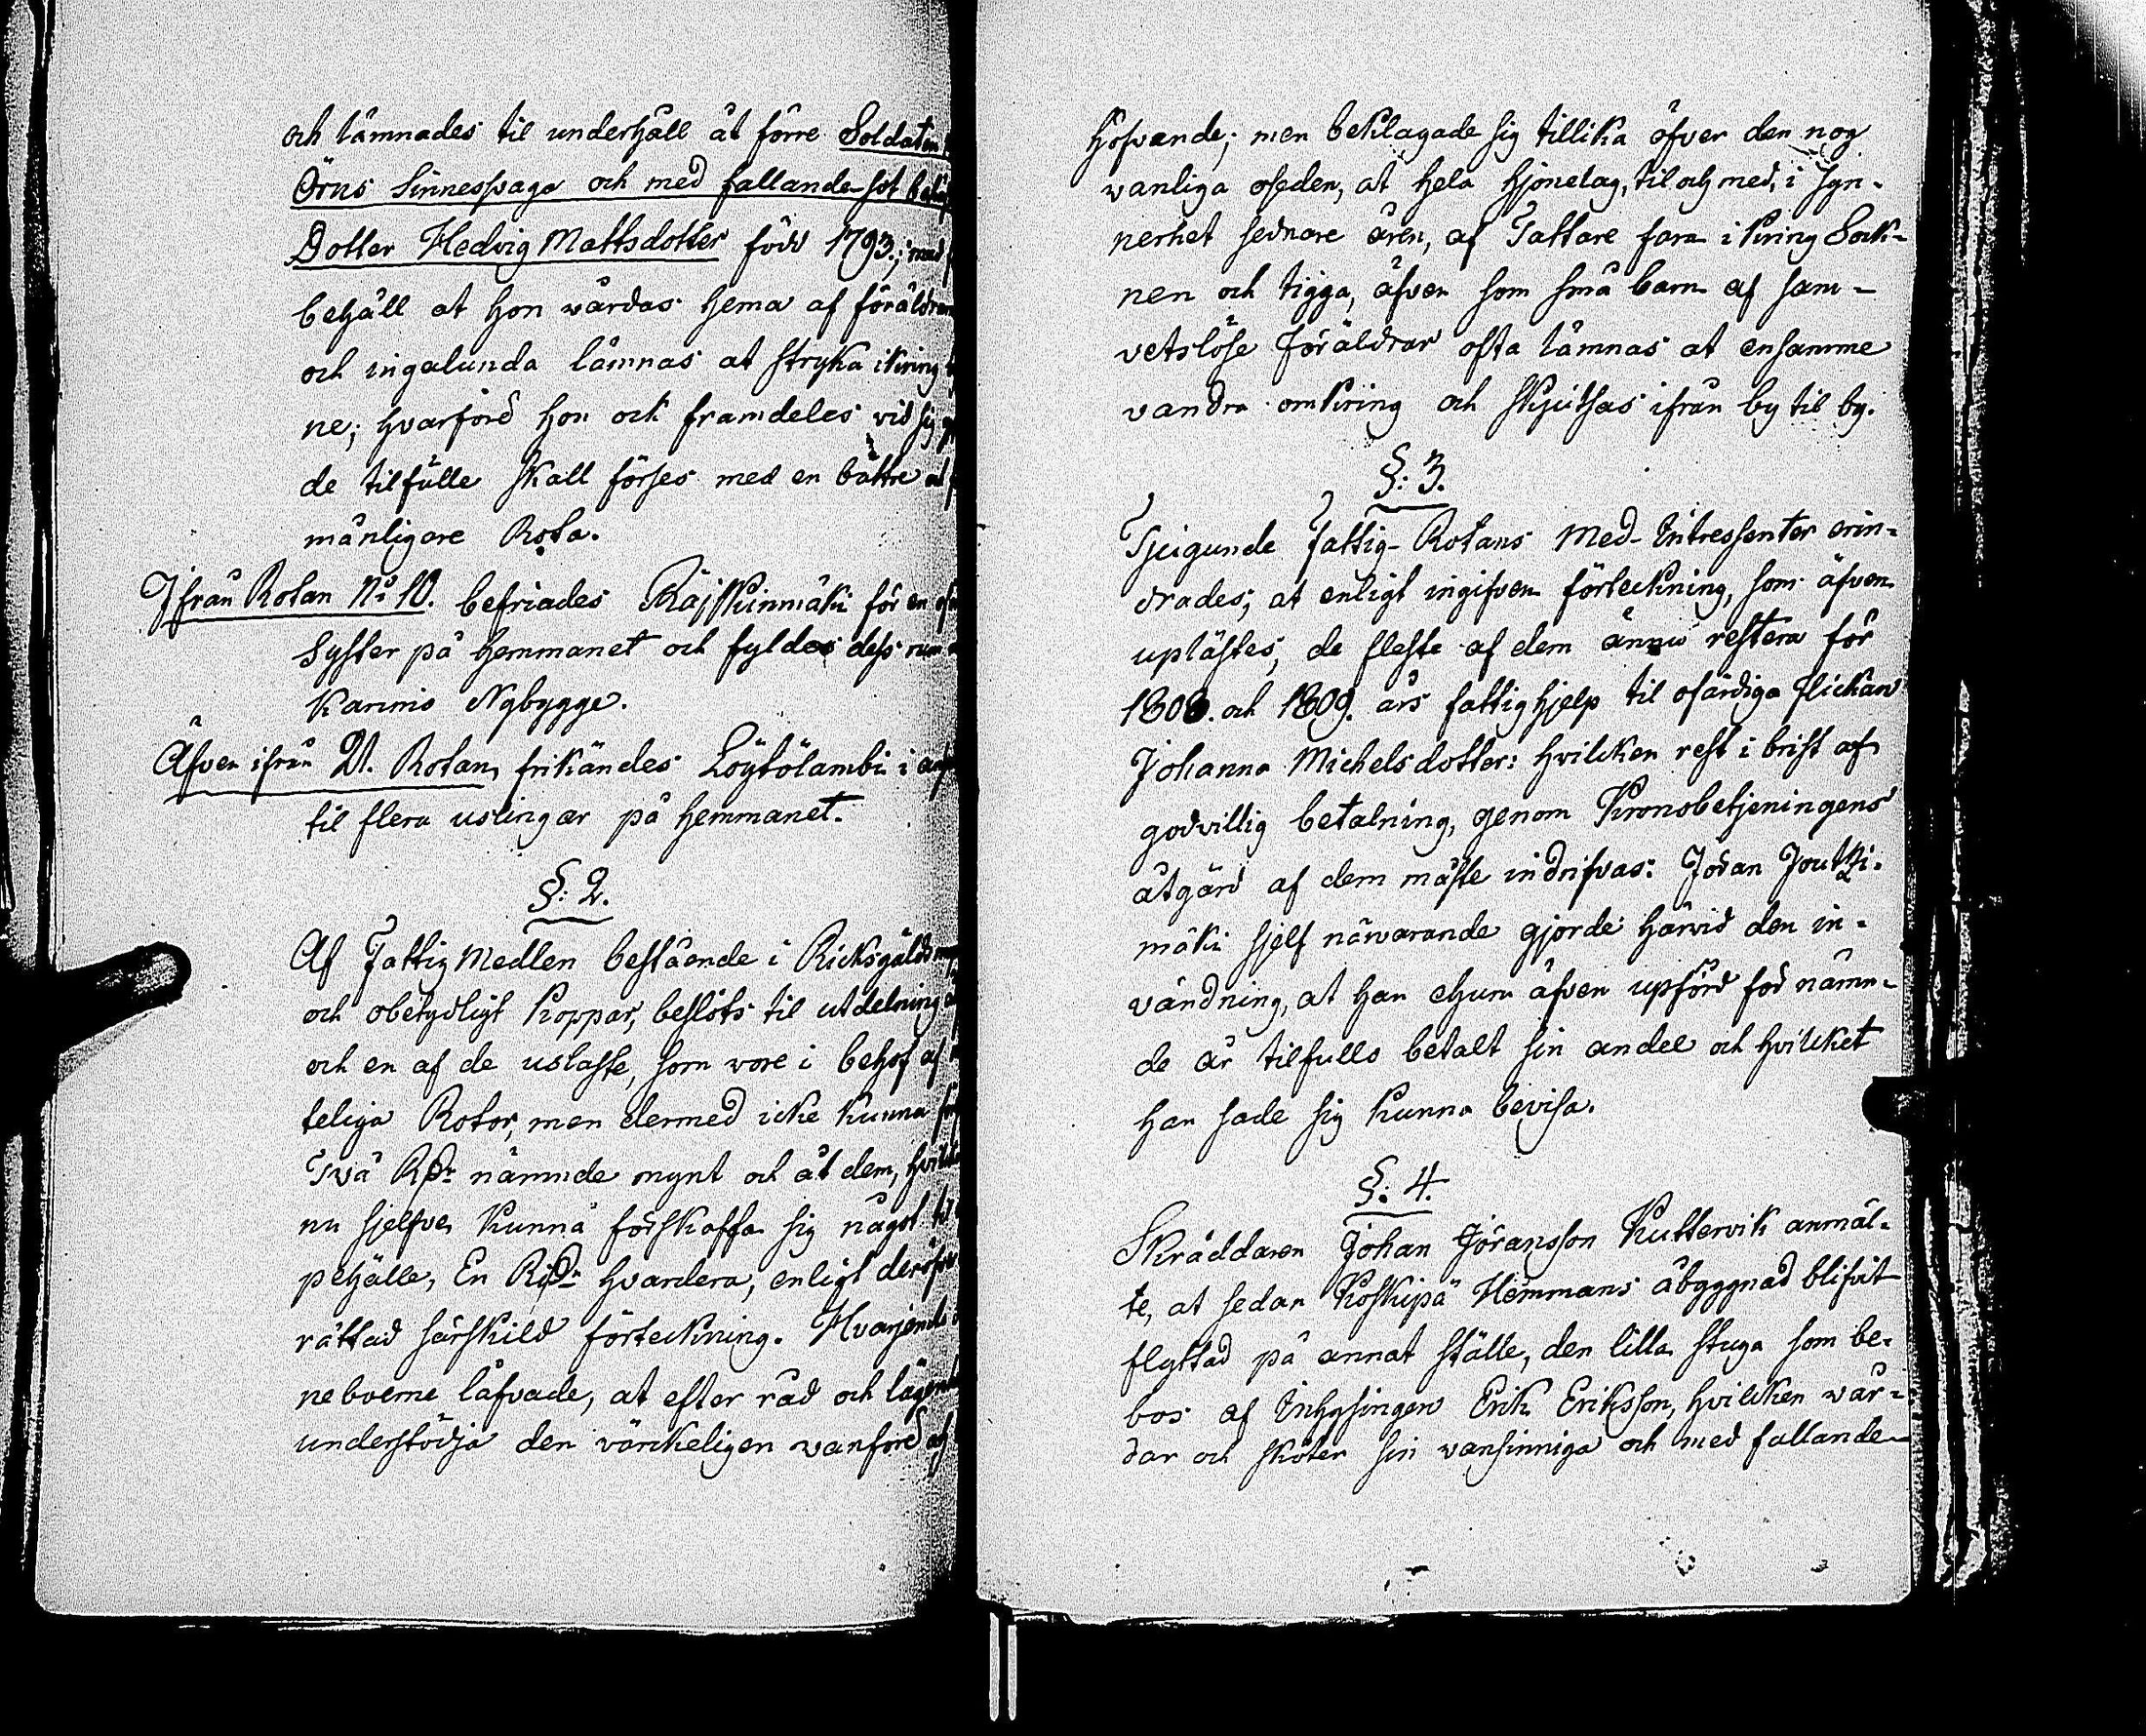 och lämnades til underhåll åt förre Soldaten
Örns Sinnessvaga och med fallande-sot
Dotter Hedvig Mattsdotter född 1793.; med
behåll at hon wårdas hema af föräldrar
och ingalunda lämnas at stryka ikring
ne; hvarföre hon ock framdeles vid sig
de tilfälle skall förses med en bättre
mänligare Rota.
Ifrån Rotan No 10. befriades Räjskinmäki för en
Syster på hemmanet och fyldes dess rum
Karinis Nybygge.
Äfven ifrån 21. Rotan, frikändes Löytölambi i
til flera uslingar på hemmanet.
§: 2.
Af Fattig Medlen bestående i Ricksgälds
och obetydligt Koppar, beslöts til utdelning
och en af de uslaste, som wore i behof af
teliga Rotor, men dermed icke kunna
Två Rdr nämnde mynt och åt dem,
nu sjelfve kunna förskaffa sig något
pehälle, En Rdr hvardera, enligt
rättad särskild förteckning.
neboerne låfvade, at efter råd och
understödja den värckeligen wanföre
höfvande; men beklagade sig tillika öfver den nog
wanliga oseden, at hela Hjonelag, til och med, i syn-
nerhet sednare åren, af Tattare fara ikring Sock-
nen och tigga, äfven som små barn af sam-
vetslöse föräldrar ofta lämnas at ensamme
vandra omkring och skjutsas ifrån by til by.
§: 3.
Tjugunde Fattig-Rotans Med-Intressenter erin-
drades; at enligt ingifven förteckning, som äfven
uplästes, de fleste af dem ännu restera för
1808. och 1809. års fattighjelp til ofärdiga flickan
Johanna Michelsdotter: hvilcken rest i brist af
godvillig betalning, genom Kronobetjeningens
åtgärd af dem måste indrifvas: Jöran Joutki-
mäki sjelf närvarande gjorde härvid den in-
vändning, at han ehuru äfven upförd för nämn-
de år tilfullo betalt sin andel och hvilcket
han sade sig kunna bevisa.
§: 4.
Skräddaren Johan Jöransson Kuttervik anmäl-
te, at sedan Koskipä Hemmans åbyggnad blifvit
flyttad på annat ställe, den lilla stuga som be-
bos af Inhysingen Erik Eriksson, hvilcken wår-
dar och sköter sin vansinniga och med fallande-